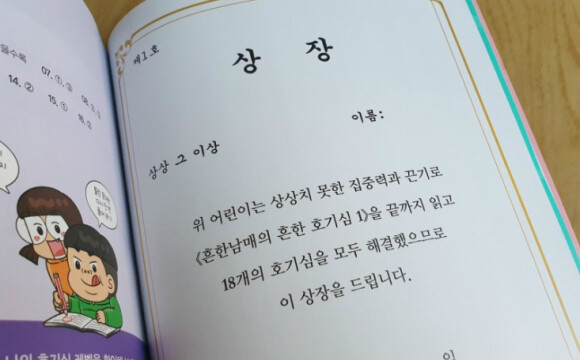 07. ①, ③
14. ②
15. ①
16. ②
제1호
상 장
이름:
상상 그 이상
위 어린이는 상상치 못한 집중력과 끈기로
《흔한남매의 흔한 호기심 1》을 끝까지 읽고
18개의 호기심을 모두 해결했으므로
이 상장을 드립니다.